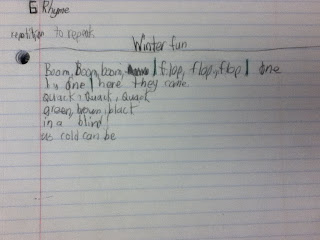 G Rhyme
repitition to repeat
Winter fun
Boom, Boom, boom, | flap, flap, flap | one
by one | here they come
Quack, Quack, Quack
green, brown, black
in a blind
as cold can be